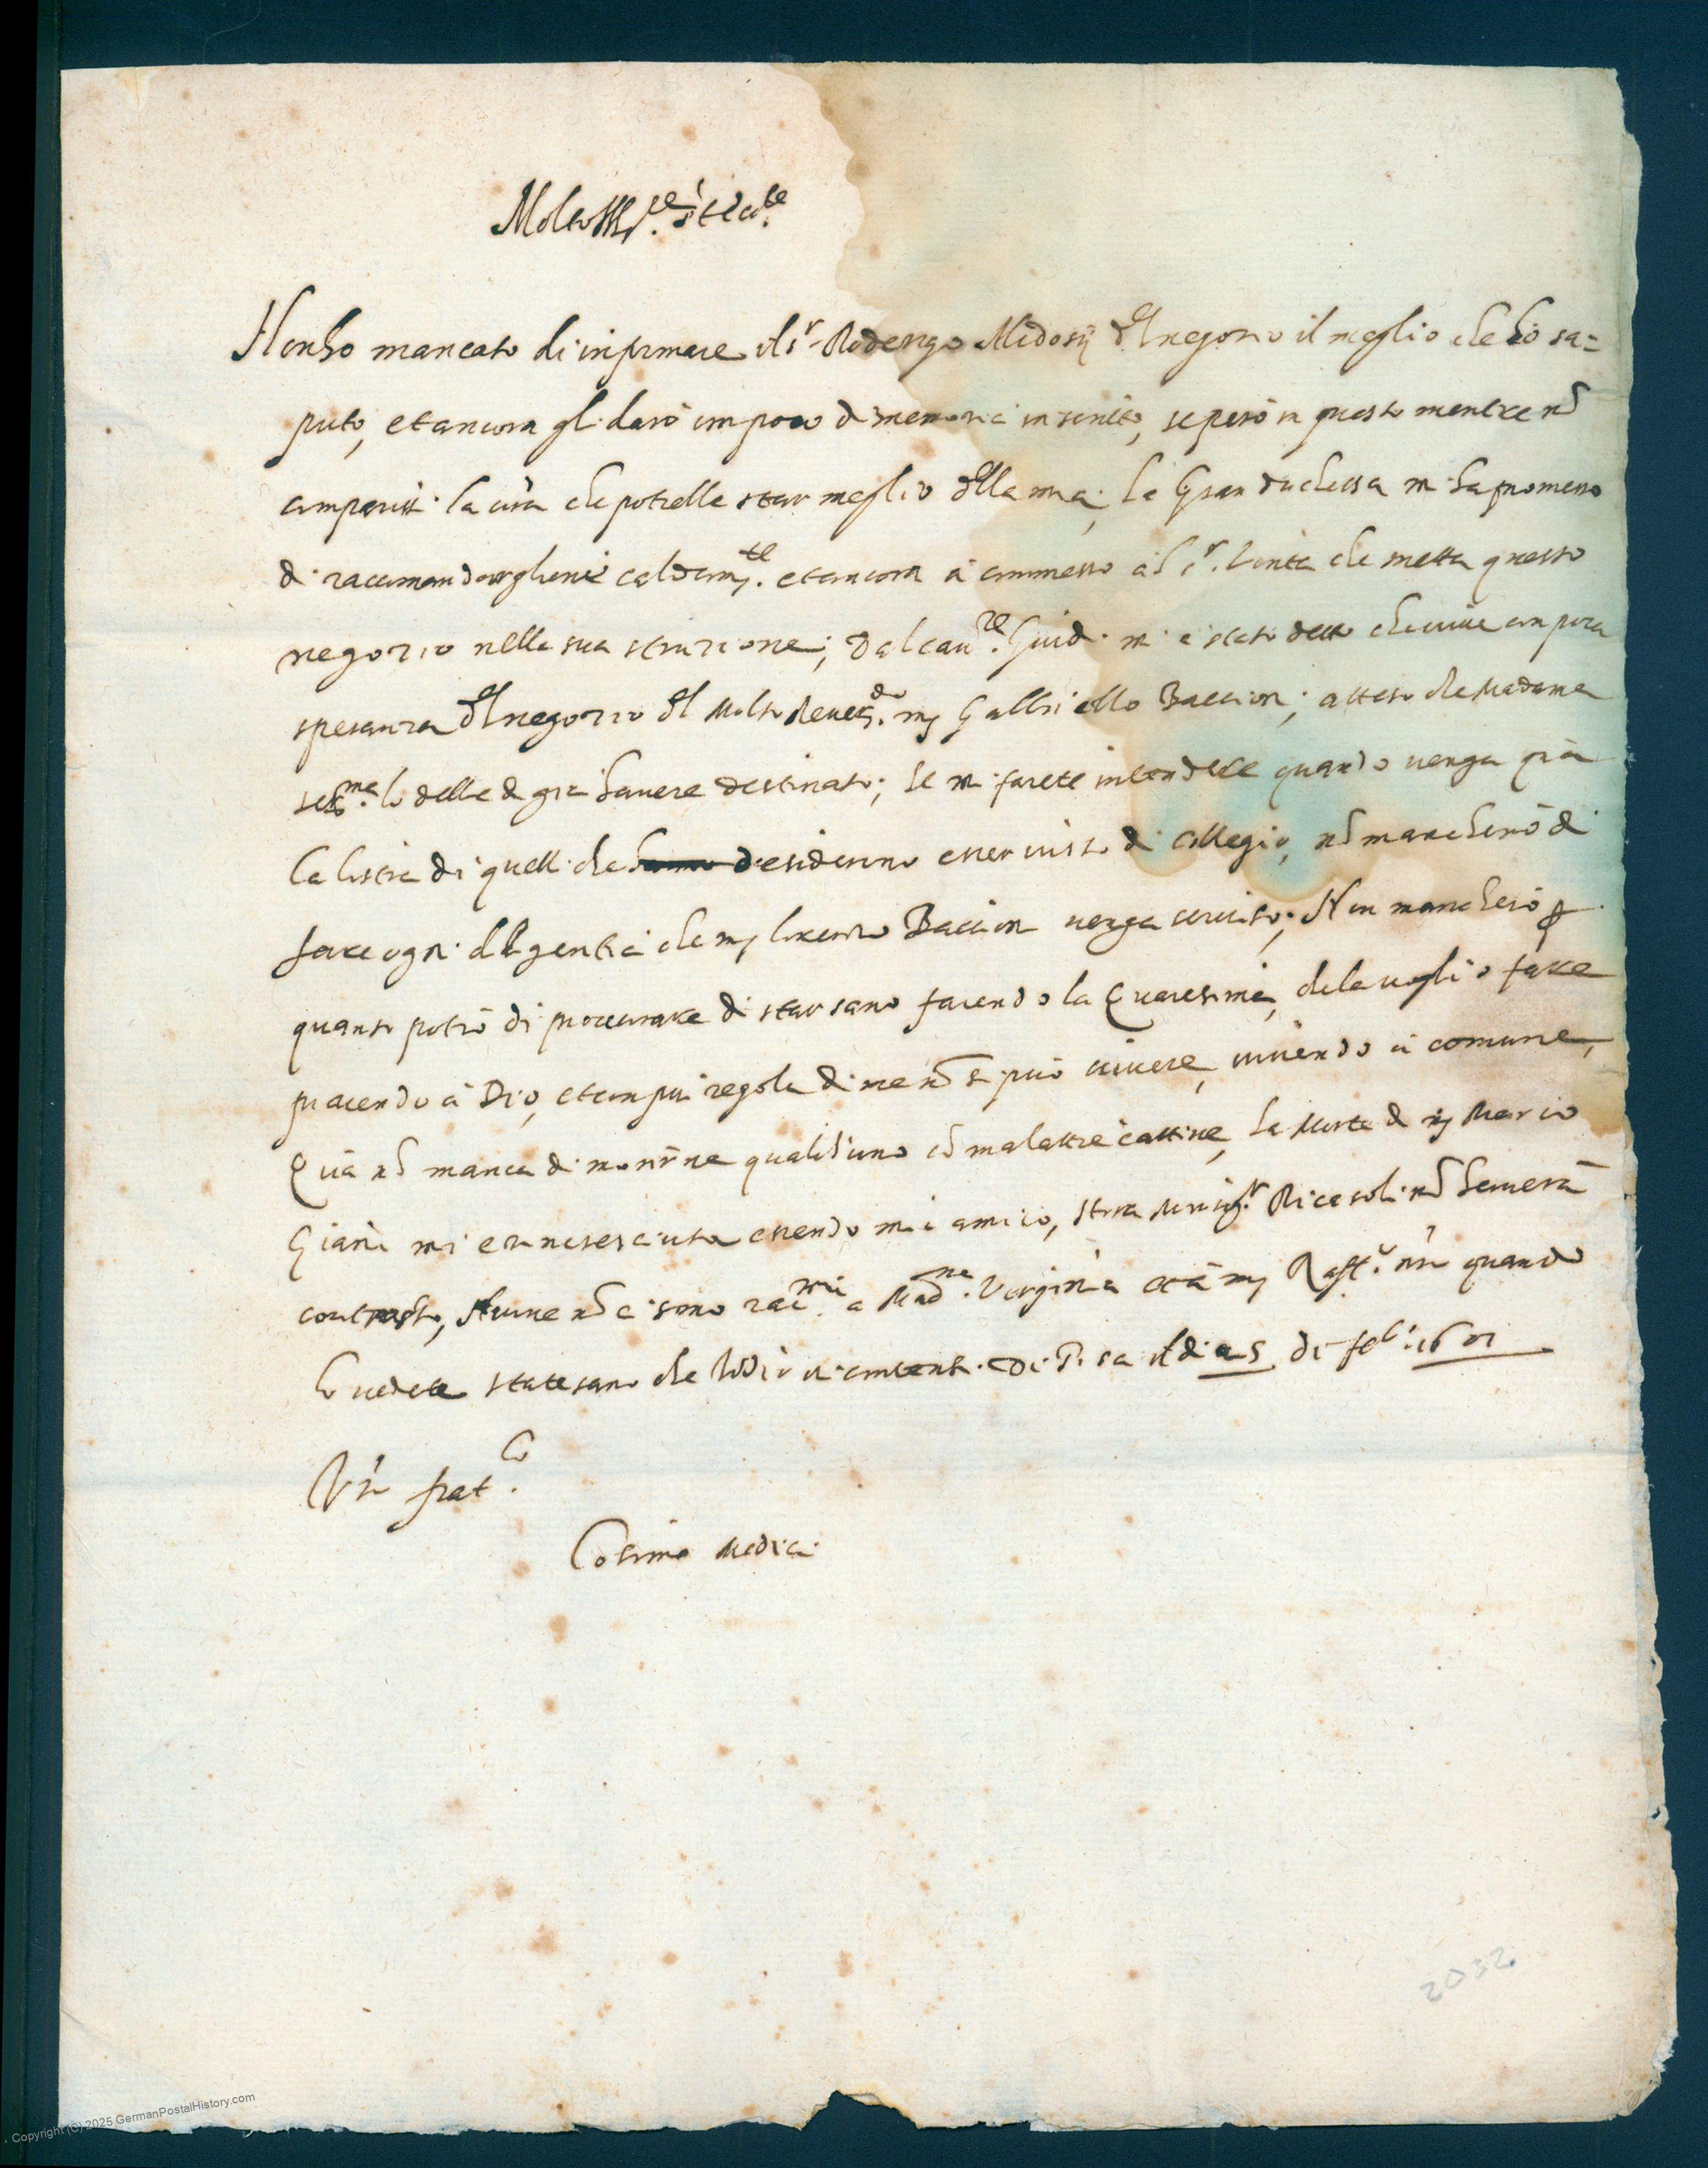 Molto Ill.re
Non ho mancato di informare il s.r Roderigo Alidosij del negotio il meglio che hò sa=
puto, et ancora gli darò un poco di memoria in scritto, se però in questo mentre nō
comparissi la cura che potrebbe star meglio della mia; La Gran duchessa mi ha promesso
di raccomandargliene caldam.te et ancora à commesso al s.r che metta questo
negozio nella sua struzione; dal cau.re Guidi mi è stato detto che uiue con poca
speranza del negozio del Molto Reuer.do mj Gabbriello Baccion; atteso che Madama
ser.ma lo debbe di già hauere destinato; Se mi farete intendere quando uenga quà
la listra di quelli che desiderino esser uisto di collegio, nō mancherò di
fare ogni diligentia che mj Lorenzo Baccion uenga seruito; Non mancherò p
quanto potrò di procurare di star sano facendo la Quaresima, che la uoglio fare
piacendo à Dio, et con più regola di me nō si può uiuere, uiuendo à comune,
Quà nō manca di morirne qualcuno cō malattie cattiue, La Morte di mj Mario
Giani mi è rincresciuta essendo mio amico, Ricasoli nō hauerà
contrasto, Nuoue nō ci sono rac.mi a Mad.na Verginia et à mj Raff.o nr̄o quando
lo uedete state sano che Iddio ui contenti. Di Pisa il di 25 di feb.o 1601
Vr̄o frat.lo
Cosimo Medici
2032
Copyright (C) 2025 GermanPostalHistory.com